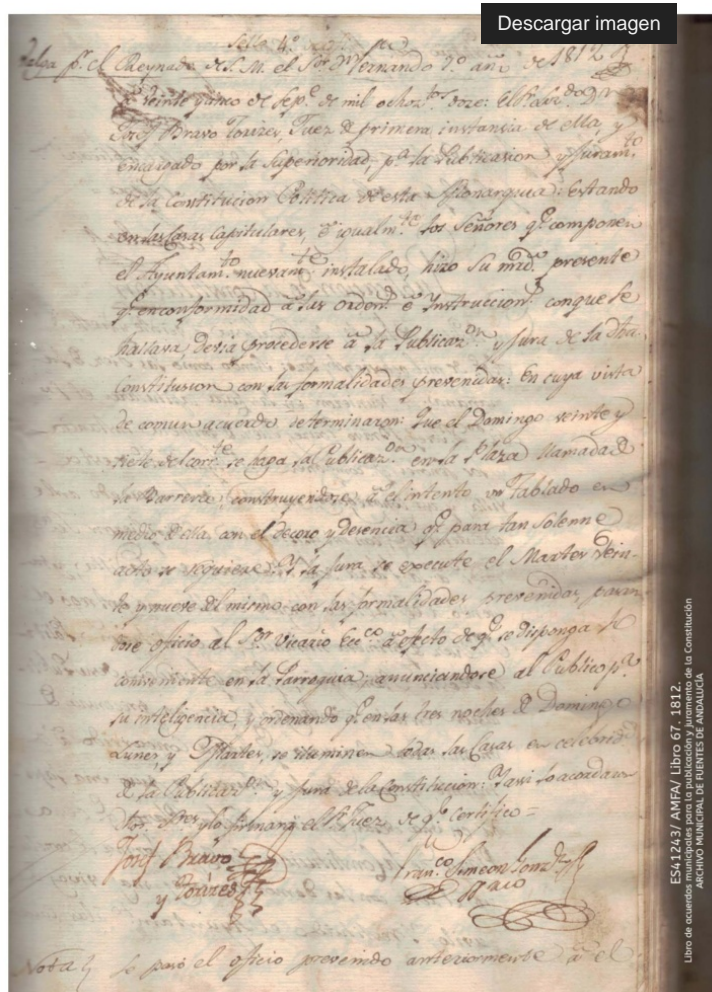 Descargar imagen
Sello 4º
Valga pª. el Reynado de S. M. el Sor. Dn. Fernando 7º. año de 1812
veinte y cinco de Sepe. de mil ochoztos. doze: El Dn.
Josef Bravo Torizes, Juez de primera instancia de ella, y
encargado por la Superioridad, pª. la Publicasion y Juramto.
de la Constitucion Politica de esta Monarquia: Estando
en las Casas Capitulares, é igualmte. los Señores qe. componen
el Ayuntamto. nuevamte. instalado, hizo su mrd. presente
qe. en conformidad á las ordens. é Instruccions. con que se
hallava, devia procederse á la Publicazon. y Jura de la dha.
Constitusion con las formalidades prevenidas: En cuya vista
de comun acuerdo determinaron: Que el Domingo veinte y
siete del corrte. se haga la Publicazon. en la Plaza llamada de
la Barrera, construyendose á el intento un Tablado en
medio de ella con el decoro y desencia qe. para tan solemne
acto se requiere: Y la Jura se execute el Martes Vein-
te y nueve del mismo con las formalidades prevenidas, pasan
dose oficio al Sor. Vicario Ecco. á efecto de qe. se disponga lo
combeniente en la Parroquia: anunciandose al Publico pª.
su inteligencia, y ordenando qe. en las tres noches de Domingo
Lunes y Martes, se iluminen todas las Casas en celebrid.
de la Publicazon. y Jura de la Constitucion: Y assi lo acordaron
y lo firmará el Sr. Juez de qe. Certifico =
Josef Bravo
y Torizes
Franco. Simeon Gonz
Nota
Se pasó el oficio prevenido anteriormente á el
ES41243/ AMFA/ Libro 67. 1812.
Libro de acuerdos municipales para la publicación y juramento de la Constitución
ARCHIVO MUNICIPAL DE FUENTES DE ANDALUCÍA